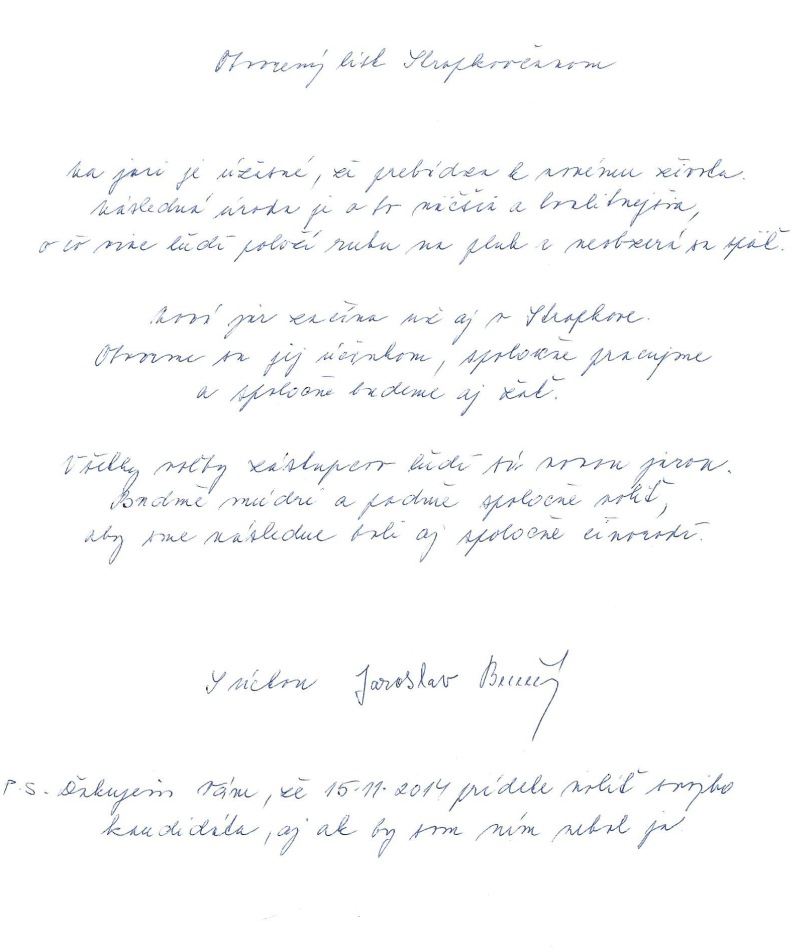 Otvorený list Stropkovčanom
Na jari je úžasné, že prebúdza k novému životu.
Následná úroda je o to väčšia a kvalitnejšia,
o čo viac ľudí položí ruku na pluh a neobzerá sa späť.
Nová jar začína už aj v Stropkove.
Otvorme sa jej účinkom, spoločne pracujme
a spoločne budeme aj žať.
Všetky voľby zástupcov ľudí sú novou jarou.
Buďme múdri a poďme spoločne voliť,
aby sme následne boli aj spoločne činorodí.
S úctou Jaroslav
P.S. Ďakujem Vám, že 15.11.2014 prídete voliť svojho
kandidáta, aj ak by som ním nebol ja